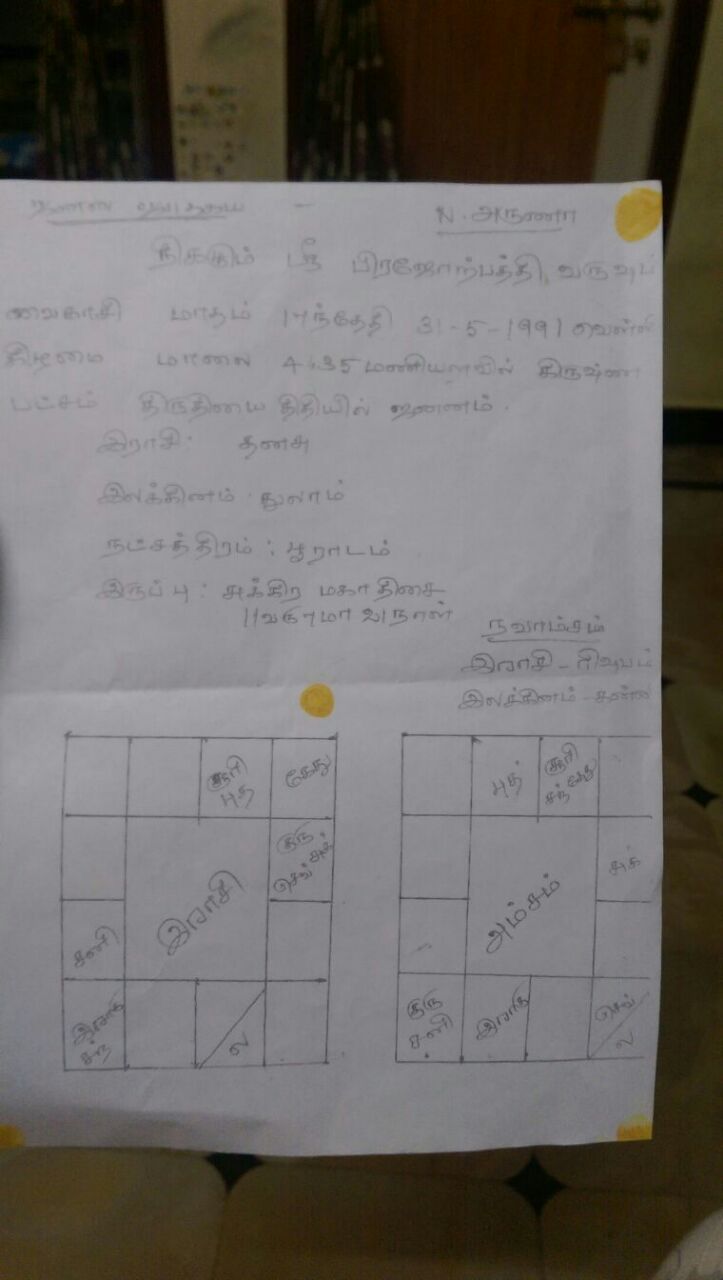 N. அருணா
நிகழும் ஸ்ரீ பிரஜோற்பத்தி வருஷம்
வைகாசி மாதம் 17ந்தேதி 31-5-1991 வெள்ளி
கிழமை மாலை 4.35 மணியளவில் கிருஷ்ண
பட்சம் திருதியை திதியில் ஜனனம்.
இராசி: தனசு
இலக்கினம்: துலாம்
நட்சத்திரம்: பூராடம்
இருப்பு: சுக்கிர மகா திசை
11வரு 7மா
நவாம்சம்
இராசி - ரிஷபம்
இலக்கினம் - கன்னி
சூரி புத்
கேது
குரு செவ் சுக்
இராசி
சனி
இராகு சந்
ல
புத்
சூரி சந் கேது
சுக்
அம்சம்
குரு சனி
இராகு
செவ் ல